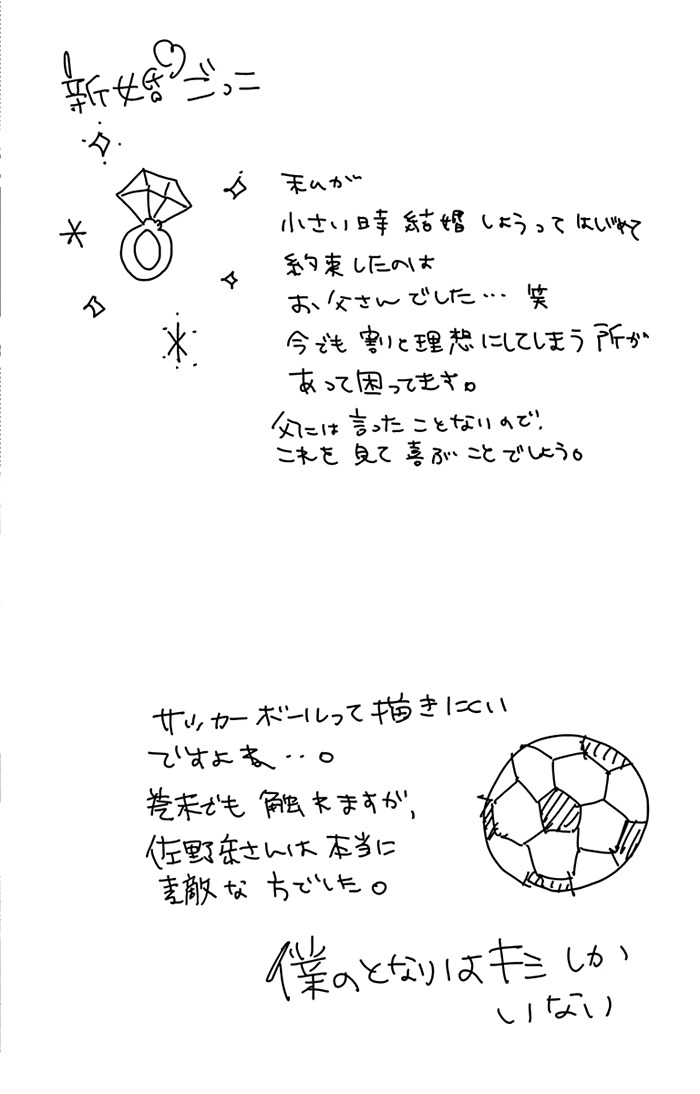 新婚♡ごっこ
私が
小さい時 結婚しようってはじめて
約束したのは
お父さんでした… 笑
今でも割と理想にしてしまう所が
あって困ってます。
父には言ったことないので、
これを見て喜ぶことでしょう。
サッカーボールって描きにくい
ですよね…。
巻末でも触れますが、
佐野岳さんは本当に
素敵な方でした。
僕のとなりはキミしか
いない